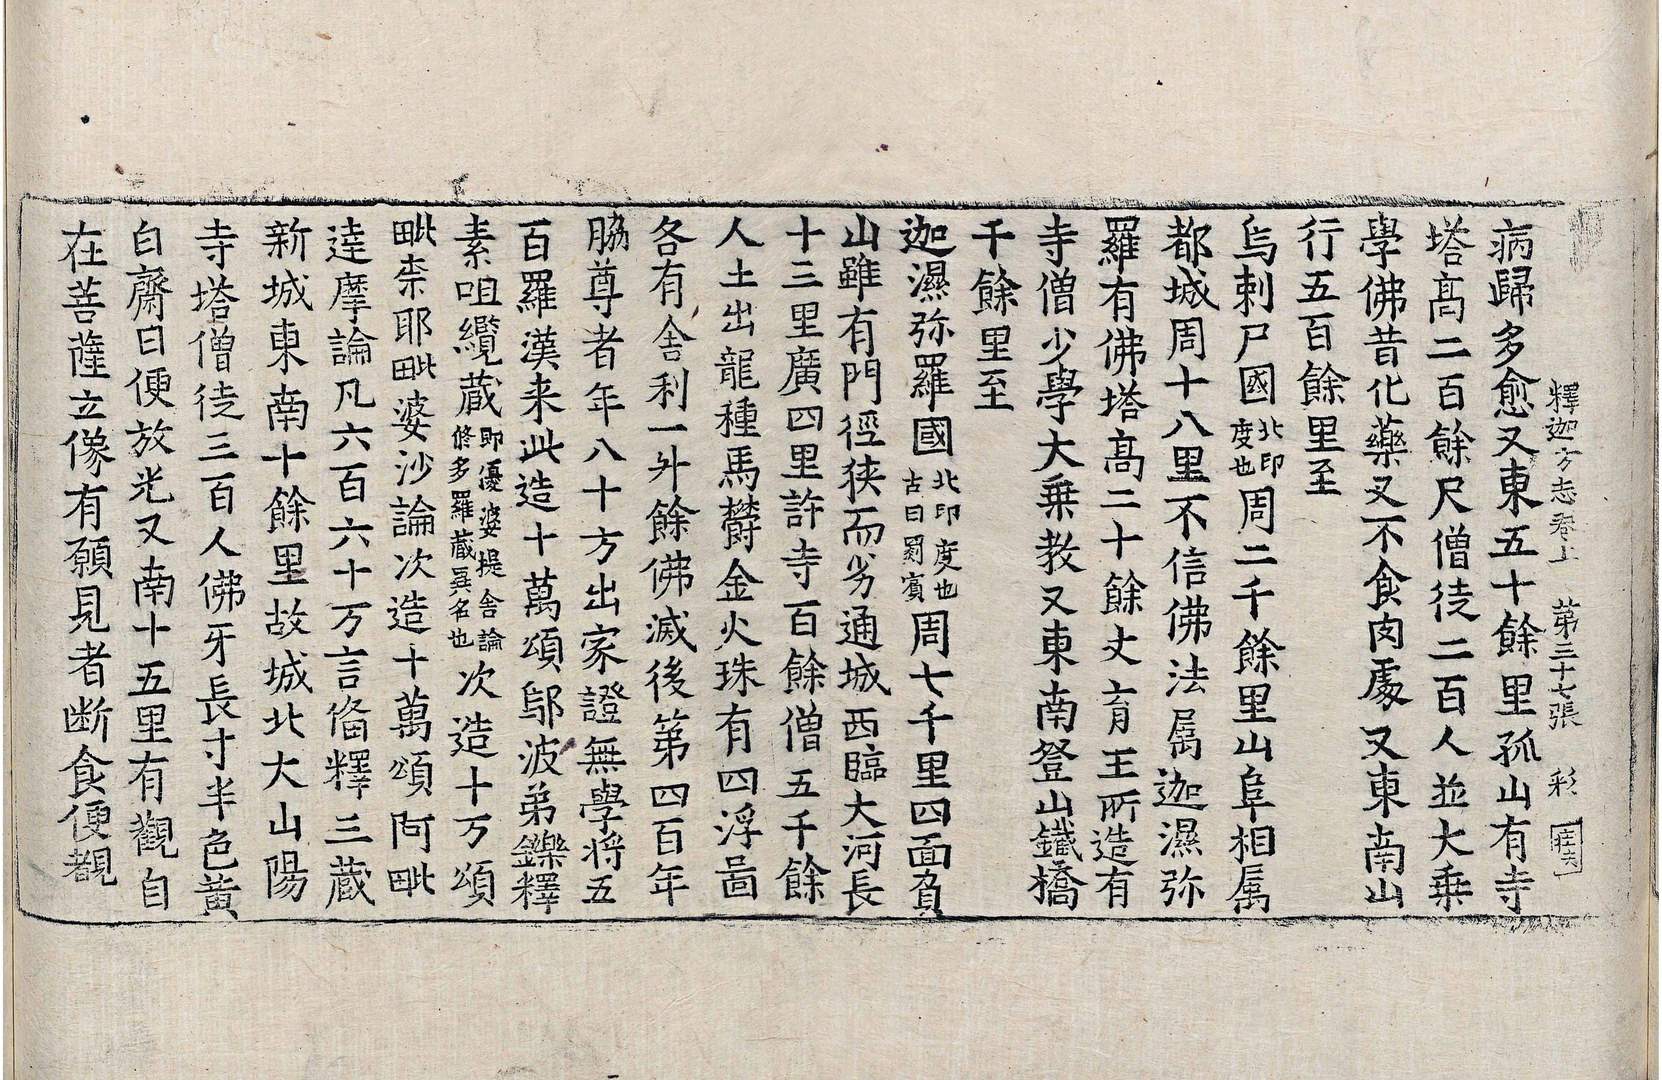 釋迦方志卷上 第三十七張 彩
病歸多愈又東五十餘里孤山有寺
塔髙二百餘尺僧徒二百人並大乗
學佛昔化藥叉不食肉處又東南山
行五百餘里至
烏剌尸國北印度也周二千餘里山阜相属
都城周十八里不信佛法属迦濕弥
羅有佛塔髙二十餘丈育王所造有
寺僧少學大乗教又東南登山鐵橋
千餘里至
迦濕弥羅國北印度也古曰罽賓周七千里四面負
山雖有門徑狭而劣通城西臨大河長
十三里廣四里許寺百餘僧五千餘
人土出龍種馬欝金火珠有四浮啚
各有舎利一外餘佛滅後第四百年
脇尊者年八十方出家證無學将五
百羅漢来此造十萬頌鄔波弟鑠釋
素咀纜蔵即優婆提舎論修多羅蔵異名也次造十万頌
毗柰耶毗婆沙論次造十萬頌阿毗
達摩論凡六百六十万言俻釋三蔵
新城東南十餘里故城北大山陽
寺塔僧徒三百人佛牙長寸半色黄
白齋日便放光又南十五里有觀自
在菩薩立像有願見者断食便覩